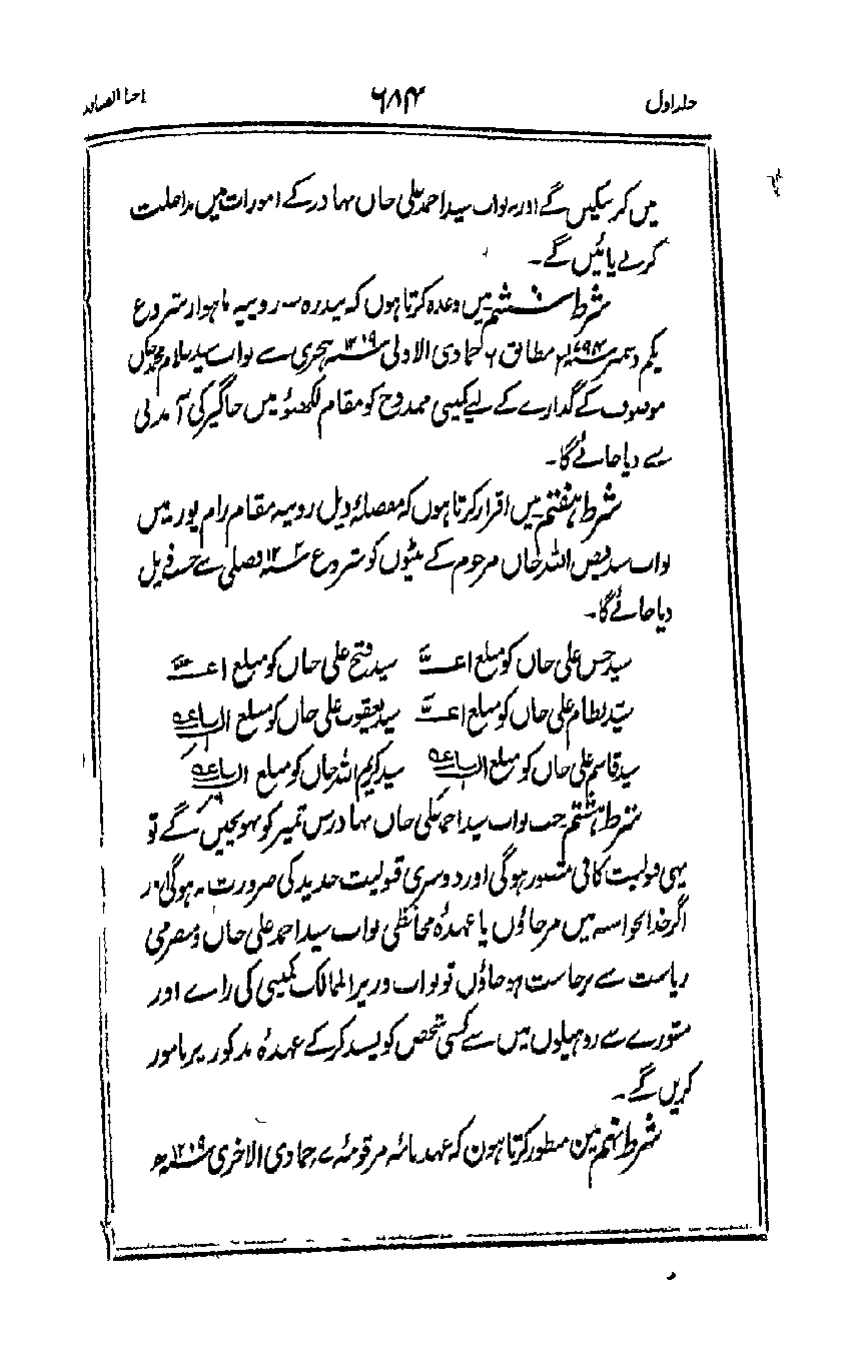 جلد اول ۶۸۴ اخبار الصنادید
میں کر سکیں گے اور نہ نواب سید احمد علی خاں بہادر کے امورات میں مداخلت
کرنے پائیں گے۔
شرط ششم میں وعدہ کرتا ہوں کہ پندرہ سے روپیہ ماہوار شروع
یکم دسمبر سنہ ۱۷۹۴ء مطابق ۷ جمادی الاولی سنہ ۱۲۰۹ ہجری سے نواب سید غلام محمد خاں
موصوف کے گذارے کے لیے کمپنی ممدوح کو مقام لکھنؤ میں جاگیر کی آمدنی
سے دیا جائے گا۔
شرط ہفتم میں اقرار کرتا ہوں کہ مفصلۂ ذیل روپیہ مقام رام پور میں
نواب سید فیض اللہ خاں مرحوم کے بیٹوں کو شروع سنہ ۱۲۰۲ فصلی سے حسب ذیل
دیا جائے گا۔
سید حسن علی خاں کو مبلغ سید فتح علی خاں کو مبلغ
سید نظام علی خاں کو مبلغ سید یعقوب علی خاں کو مبلغ
سید قاسم علی خاں کو مبلغ سید کریم اللہ خاں کو مبلغ
شرط ہشتم جب نواب سید احمد علی خاں بہادر سن تمیز کو پہونچیں گے تو
یہی قبولیت کافی متصور ہوگی اور دوسری قبولیت جدید کی ضرورت نہ ہوگی اور
اگر خدانخواستہ میں مرجاؤں یا عہدۂ محافظی نواب سید احمد علی خاں و منصرمی
ریاست سے برخاست ہو جاؤں تو نواب وزیر الممالک کمپنی کی راے اور
مشورے سے روہیلوں میں سے کسی شخص کو پسند کرکے عہدۂ مذکور پر مامور
کریں گے۔
شرط نہم مین منظور کرتا ہون کہ عہد نامۂ مرقومۂ ۷ جمادی الاخری سنہ ۱۲۰۹ھ